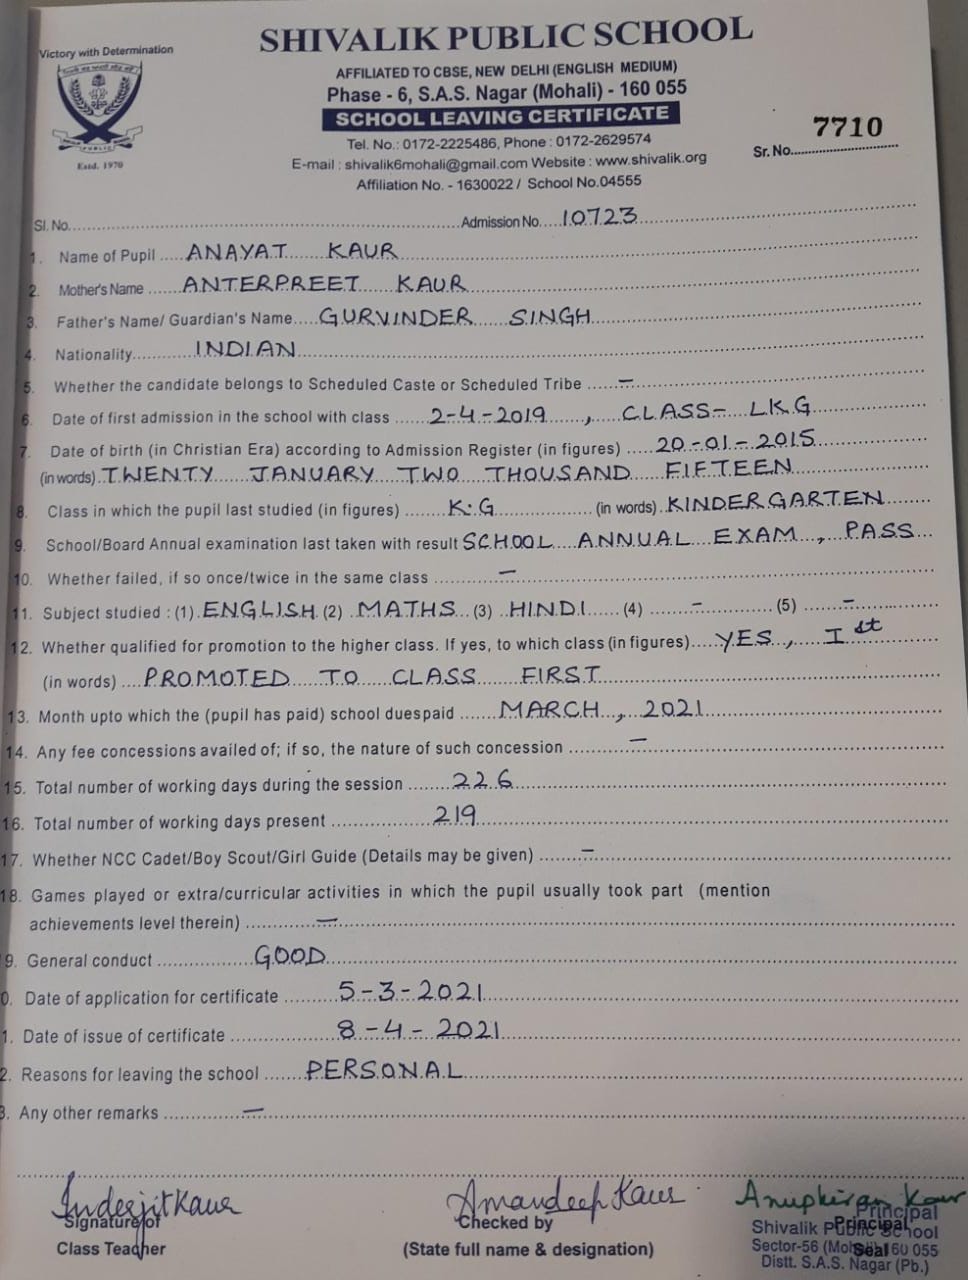 Victory with Determination
SHIVALIK PUBLIC SCHOOL
AFFILIATED TO CBSE, NEW DELHI (ENGLISH MEDIUM)
Phase - 6, S.A.S. Nagar (Mohali) - 160 055
SCHOOL LEAVING CERTIFICATE
Tel. No.: 0172-2225486, Phone : 0172-2629574
E-mail : shivalik6mohali@gmail.com Website : www.shivalik.org
Affiliation No. - 1630022 / School No.04555
Estd. 1970
7710
Sr. No.
Sl. No. Admission No. 10723
1. Name of Pupil ANAYAT KAUR
2. Mother's Name ANTERPREET KAUR
3. Father's Name/ Guardian's Name GURVINDER SINGH
4. Nationality INDIAN
5. Whether the candidate belongs to Scheduled Caste or Scheduled Tribe –
6. Date of first admission in the school with class 2-4-2019, CLASS- L.K.G
7. Date of birth (in Christian Era) according to Admission Register (in figures) 20-01-2015
(in words) TWENTY JANUARY TWO THOUSAND FIFTEEN
8. Class in which the pupil last studied (in figures) K.G (in words) KINDERGARTEN
9. School/Board Annual examination last taken with result SCHOOL ANNUAL EXAM, PASS
10. Whether failed, if so once/twice in the same class –
11. Subject studied : (1) ENGLISH (2) MATHS (3) HINDI (4) – (5) –
12. Whether qualified for promotion to the higher class. If yes, to which class (in figures) YES, Ist
(in words) PROMOTED TO CLASS FIRST
13. Month upto which the (pupil has paid) school duespaid MARCH, 2021
14. Any fee concessions availed of; if so, the nature of such concession –
15. Total number of working days during the session 226
16. Total number of working days present 219
17. Whether NCC Cadet/Boy Scout/Girl Guide (Details may be given) –
18. Games played or extra/curricular activities in which the pupil usually took part (mention
achievements level therein) –
9. General conduct GOOD
0. Date of application for certificate 5-3-2021
1. Date of issue of certificate 8-4-2021
2. Reasons for leaving the school PERSONAL
3. Any other remarks –
Inderjit Kaur Amandeep Kaur Anupkiran Kaur
Signature of Checked by Principal
Class Teacher (State full name & designation) Seal
Principal
Shivalik Public School
Sector-56 (Mohali) 160 055
Distt. S.A.S. Nagar (Pb.)